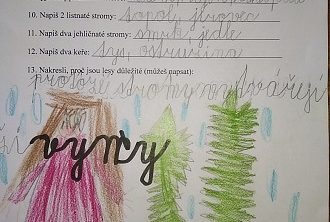 10. Napiš 2 listnaté stromy: topol, jírovec
11. Napiš dva jehličnaté stromy: smrk, jedle
12. Napiš dva keře: tys, ostružina
13. Nakresli, proč jsou lesy důležité (můžeš popsat):
protože stromy vytvářejí